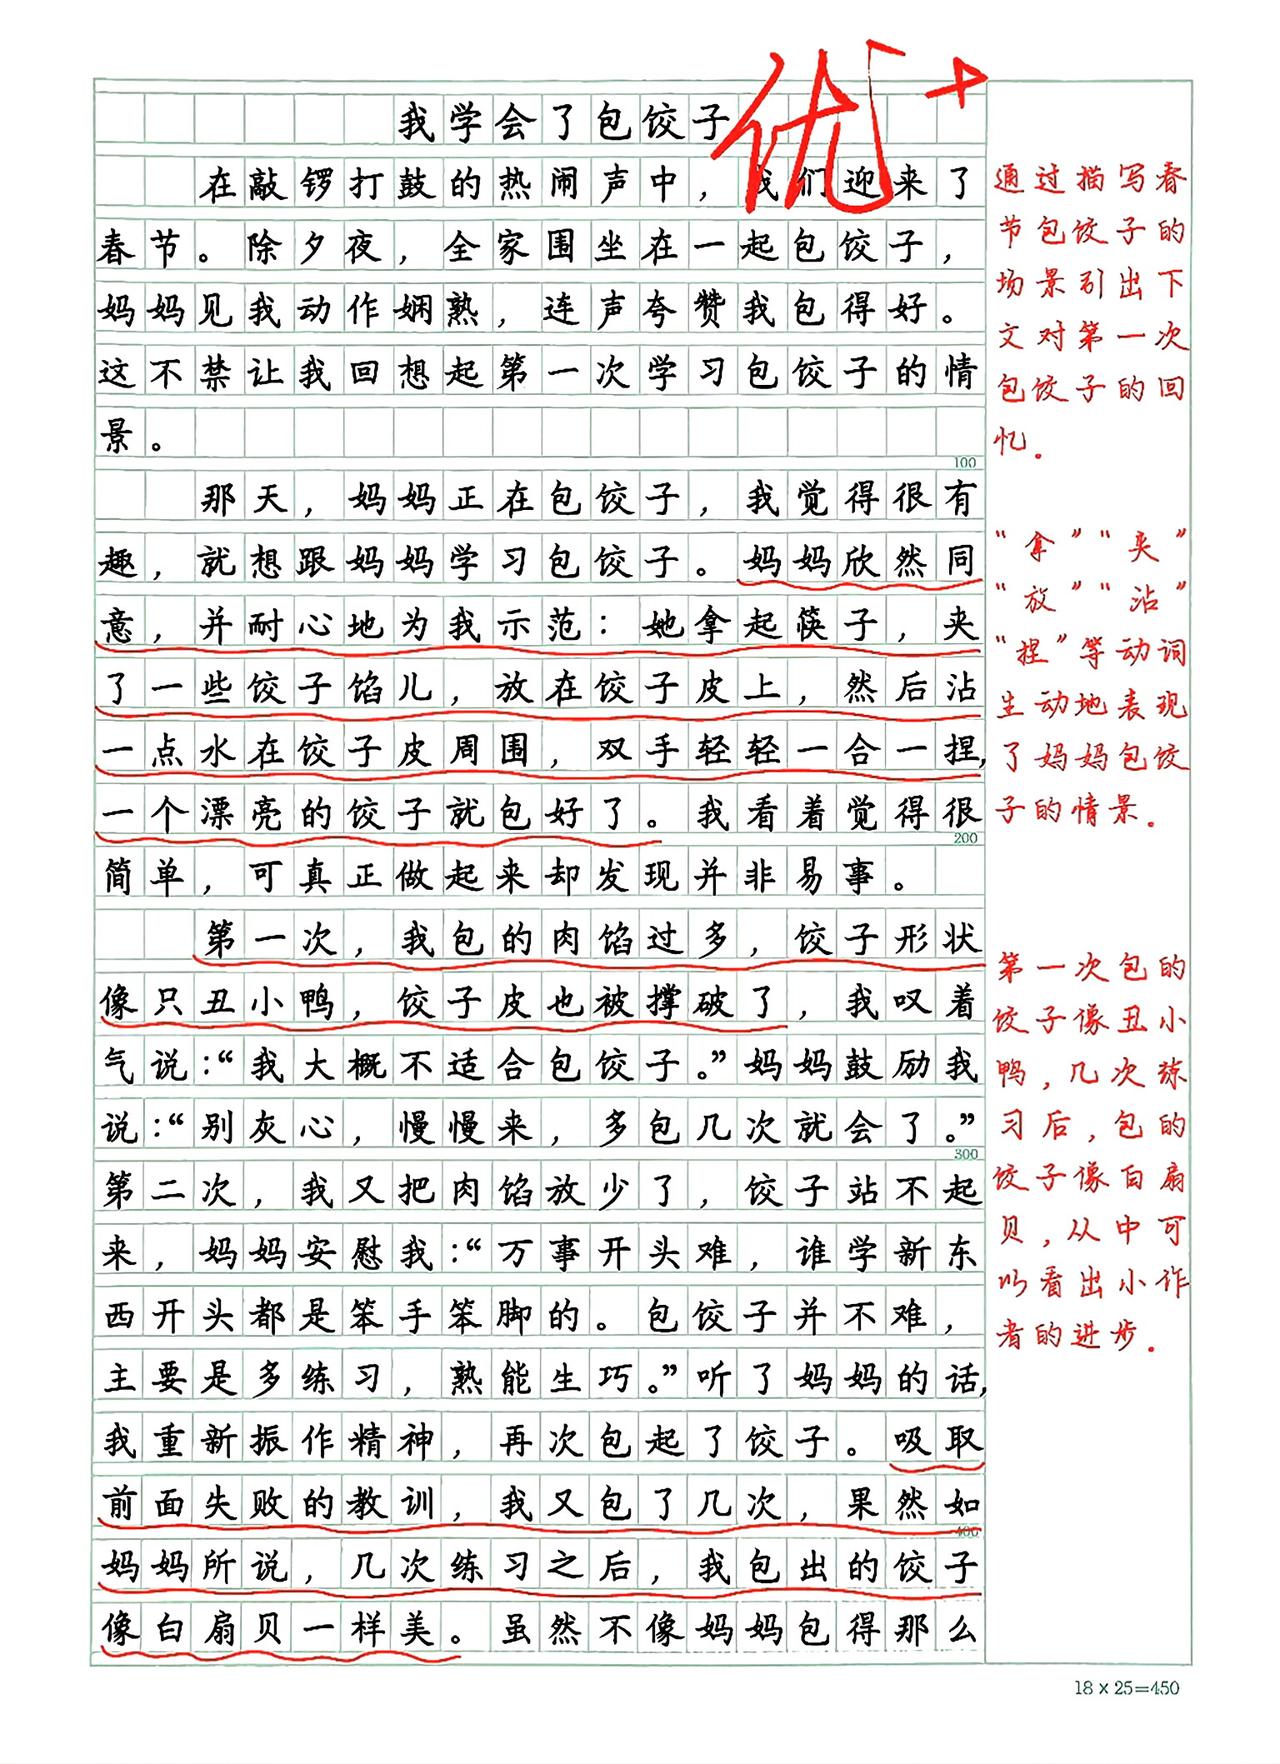 我学会了包饺子
优+
在敲锣打鼓的热闹声中，我们迎来了
春节。除夕夜，全家围坐在一起包饺子，
妈妈见我动作娴熟，连声夸赞我包得好。
这不禁让我回想起第一次学习包饺子的情
景。
100
那天，妈妈正在包饺子，我觉得很有
趣，就想跟妈妈学习包饺子。妈妈欣然同
意，并耐心地为我示范：她拿起筷子，夹
了一些饺子馅儿，放在饺子皮上，然后沾
一点水在饺子皮周围，双手轻轻一合一捏，
一个漂亮的饺子就包好了。我看着觉得很
200
简单，可真正做起来却发现并非易事。
第一次，我包的肉馅过多，饺子形状
像只丑小鸭，饺子皮也被撑破了，我叹着
气说：“我大概不适合包饺子。”妈妈鼓励我
说：“别灰心，慢慢来，多包几次就会了。”
300
第二次，我又把肉馅放少了，饺子站不起
来，妈妈安慰我：“万事开头难，谁学新东
西开头都是笨手笨脚的。包饺子并不难，
主要是多练习，熟能生巧。”听了妈妈的话，
我重新振作精神，再次包起了饺子。吸取
前面失败的教训，我又包了几次，果然如
400
妈妈所说，几次练习之后，我包出的饺子
像白扇贝一样美。虽然不像妈妈包得那么
通过描写春
节包饺子的
场景引出下
文对第一次
包饺子的回
忆．
“拿”“夹”
“放”“沾”
“捏”等动词
生动地表现
了妈妈包饺
子的情景．
第一次包的
饺子像丑小
鸭，几次练
习后，包的
饺子像白扇
贝，从中可
以看出小作
者的进步．
18×25=450